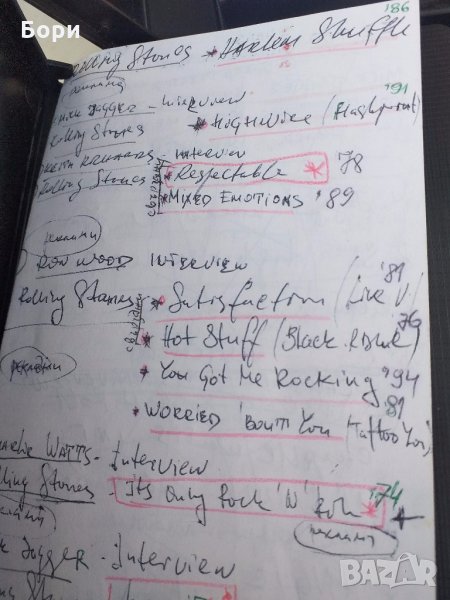 Бори
'86
Rolling Stones * Harlem Shuffle
реклами
Mick Jagger - Interview
'91
Rolling Stones * Highwire (Flashpoint)
Keith Richards - Interview
Rolling Stones * Respectable * '78
* Mixed Emotions '89
реклами
Ron Wood Interview
'81
Rolling Stones * Satisfaction (Live
76
* Hot Stuff (Black
реклами
* You Got Me Rocking '94
81
* Worried 'Bout You (Tattoo You)
Charlie Watts - Interview
Rolling Stones - Its Only Rock 'N' Roll '74
реклами
реклами
Jagger - Interview
BAZAR
bg